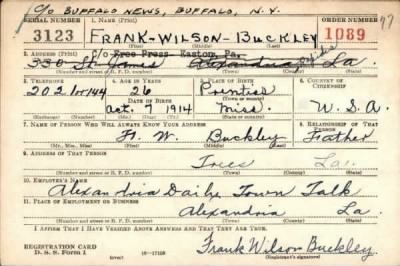 C/O BUFFALO NEWS, BUFFALO, N.Y.
SERIAL NUMBER 1. NAME (Print) ORDER NUMBER
3123 FRANK-WILSON-BUCKLEY 1089
(First) (Middle) (Last)
2. ADDRESS (Print) c/o Free Press- Easton, Pa.
330 St. James Alexandria Rapides La.
(Number and street or R. F. D. number) (Town) (County) (State)
3. TELEPHONE 4. AGE IN YEARS 5. PLACE OF BIRTH 6. COUNTRY OF CITIZENSHIP
26
DATE OF BIRTH
Oct. 7 1914 Miss. U.S.A.
(Exchange) (Number) (Mo.) (Day) (Yr.) (State or country)
7. NAME OF PERSON WHO WILL ALWAYS KNOW YOUR ADDRESS 8. RELATIONSHIP OF THAT PERSON
W. Buckley Father
(Mr., Mrs., Miss) (First) (Middle) (Last)
9. ADDRESS OF THAT PERSON
Trees La.
(Number and street or R. F. D. number) (Town) (County) (State)
10. EMPLOYER'S NAME
Alexandria Daily Town Talk
11. PLACE OF EMPLOYMENT OR BUSINESS
Alexandria La.
(Number and street or R. F. D. number) (Town) (County) (State)
I AFFIRM THAT I HAVE VERIFIED ABOVE ANSWERS AND THAT THEY ARE TRUE.
REGISTRATION CARD
D. S. S. Form 1 (over) 16-17105 Frank Wilson Buckley
(Registrant's signature)